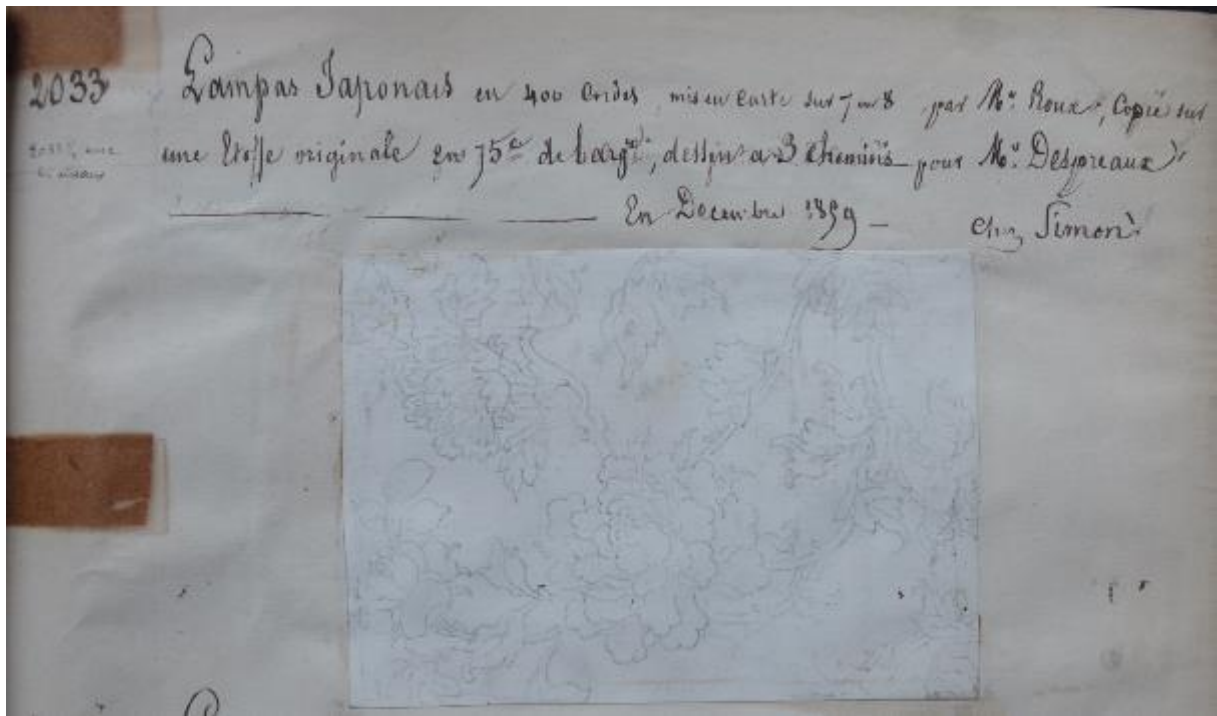 2033 Lampas Japonais en 400 Cordes, mis en Carte sur 7 en 8 par Mr. Roux, Copié sur
une Etoffe originale en 75c de Largr, dessin a 3 chemins pour Mr. Despreaux
En Decembre 1859 – Chez Simon
2033 avec